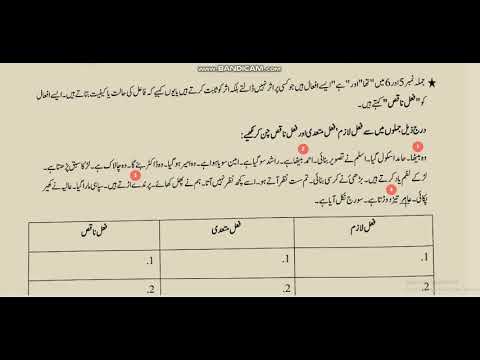 WWW.BANDICAM.COM
★ جملہ نمبر 5 اور 6 میں "تھا" اور "ہے" ایسے افعال ہیں جو کسی پر اثر نہیں ڈالتے بلکہ اثر کو ثابت کرتے ہیں یا یوں کہیے کہ فاعل کی حالت یا کیفیت بتاتے ہیں۔ ایسے افعال
کو "فعل ناقص" کہتے ہیں۔
درج ذیل جملوں میں سے فعل لازم، فعل متعدی اور فعل ناقص چن کر لکھیے:
وہ بیٹھا۔ حامد اسکول گیا۔ اسلم نے تصویر بنائی۔ احمد بیٹھا ہے۔ راشد سو گیا ہے۔ امین سویا ہوا ہے۔ وہ امیر ہو گیا۔ وہ ڈاکٹر بنے گا۔ وہ چالاک ہے۔ لڑکا سبق پڑھتا ہے۔
لڑکے نظم یاد کرتے ہیں۔ بڑھئی نے کرسی بنائی۔ تم ست نظر آتے ہو۔ اسے کچھ نظر نہیں آتا۔ ہم نے پھل کھائے۔ پرندے اڑتے ہیں۔ سپاہی مارا گیا۔ عالیہ نے کھیر
پکائی۔ تیز دوڑتا ہے۔ سورج نکل آیا ہے۔
فعل لازم فعل متعدی فعل ناقص
1. 1. 1.
2. 2. 2.